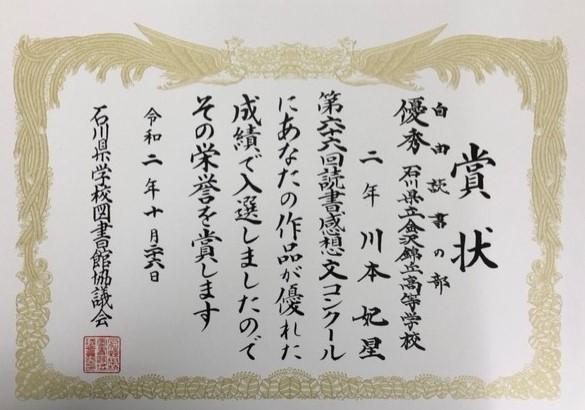 賞状
自由読書の部
優秀 石川県立金沢錦丘高等学校
二年 川本妃星
第六十六回読書感想文コンクール
にあなたの作品が優れた
成績で入選しましたので
その栄誉を賞します
令和二年十月二十六日
石川県学校図書館協議会